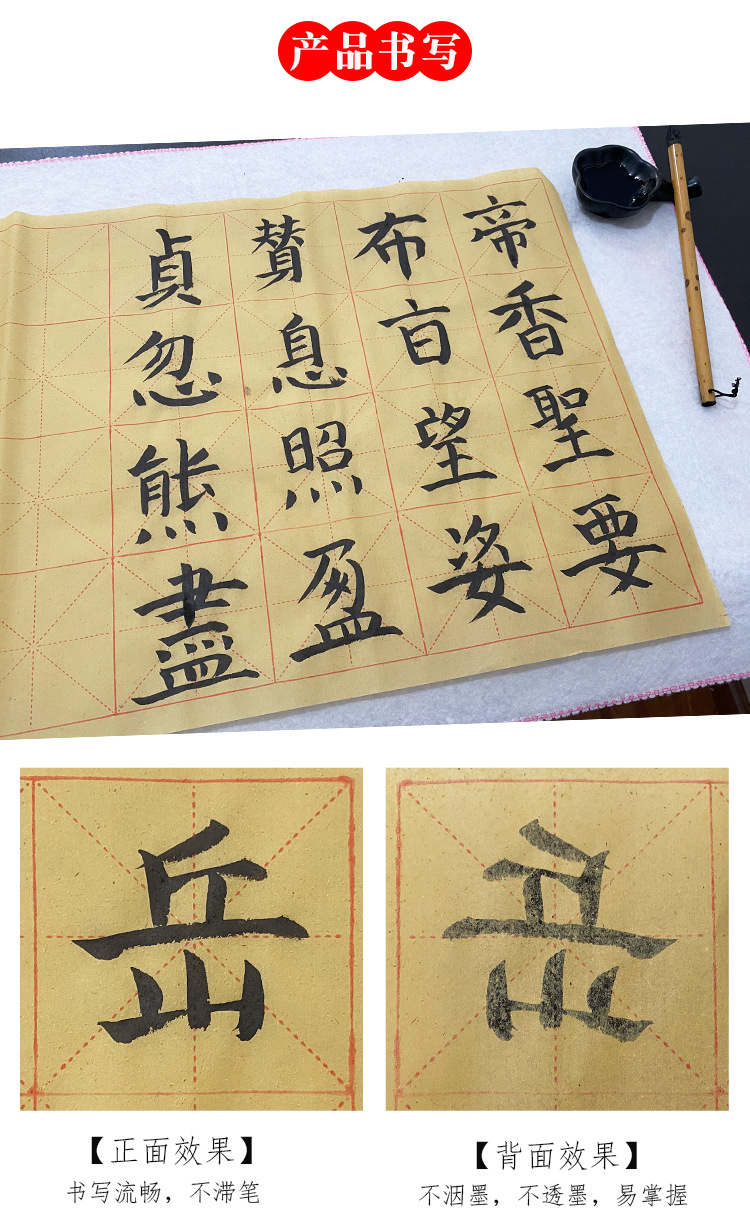 产品书写
帝香聖要
布望姿
賛息照盈
貞忽熊盡
岳
岳
【正面效果】
【背面效果】
书写流畅，不滞笔
不洇墨，不透墨，易掌握